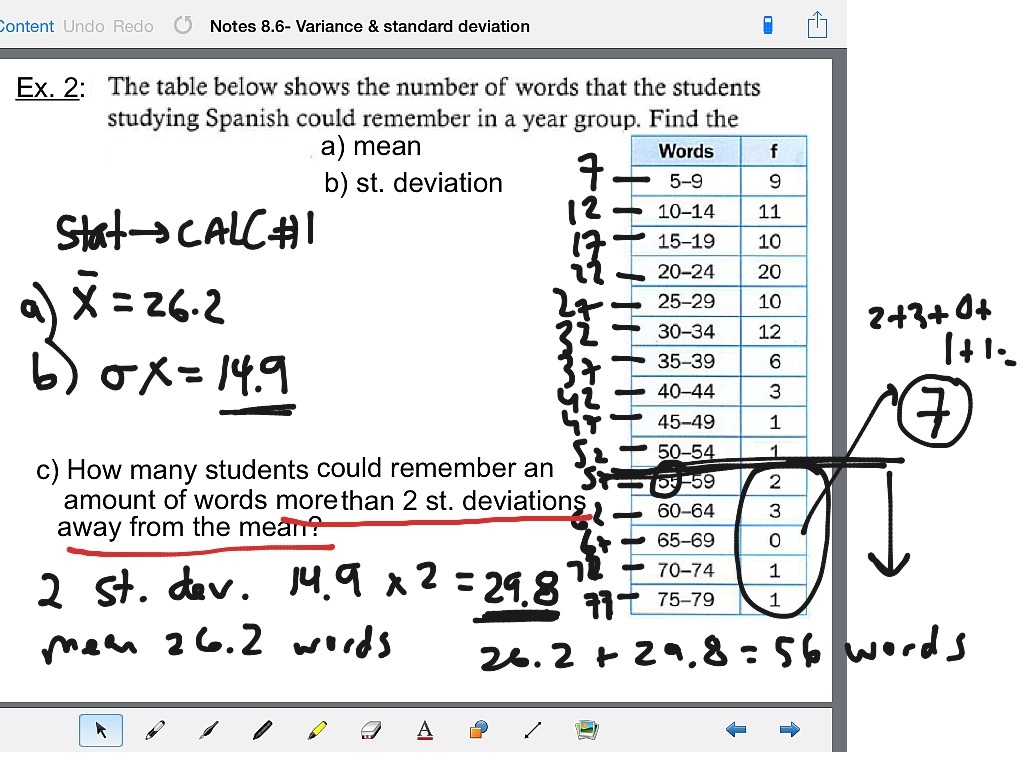 Content Undo Redo Notes 8.6- Variance & standard deviation
Ex. 2: The table below shows the number of words that the students
studying Spanish could remember in a year group. Find the
a) mean
b) st. deviation
Stat→CALC#1
a) x̄ = 26.2
b) σx = 14.9
Words f
7 – 5–9 9
12 – 10–14 11
17 – 15–19 10
22 – 20–24 20
27 – 25–29 10
32 – 30–34 12
37 – 35–39 6
42 – 40–44 3
47 – 45–49 1
52 – 50–54 1
57 – 55–59 2
62 – 60–64 3
67 – 65–69 0
72 – 70–74 1
77 – 75–79 1
2+3+0+
1+1=
7
c) How many students could remember an
amount of words more than 2 st. deviations
away from the mean?
2 st. dev. 14.9 x 2 = 29.8
mean 26.2 words
26.2 + 29.8 = 56 words
A